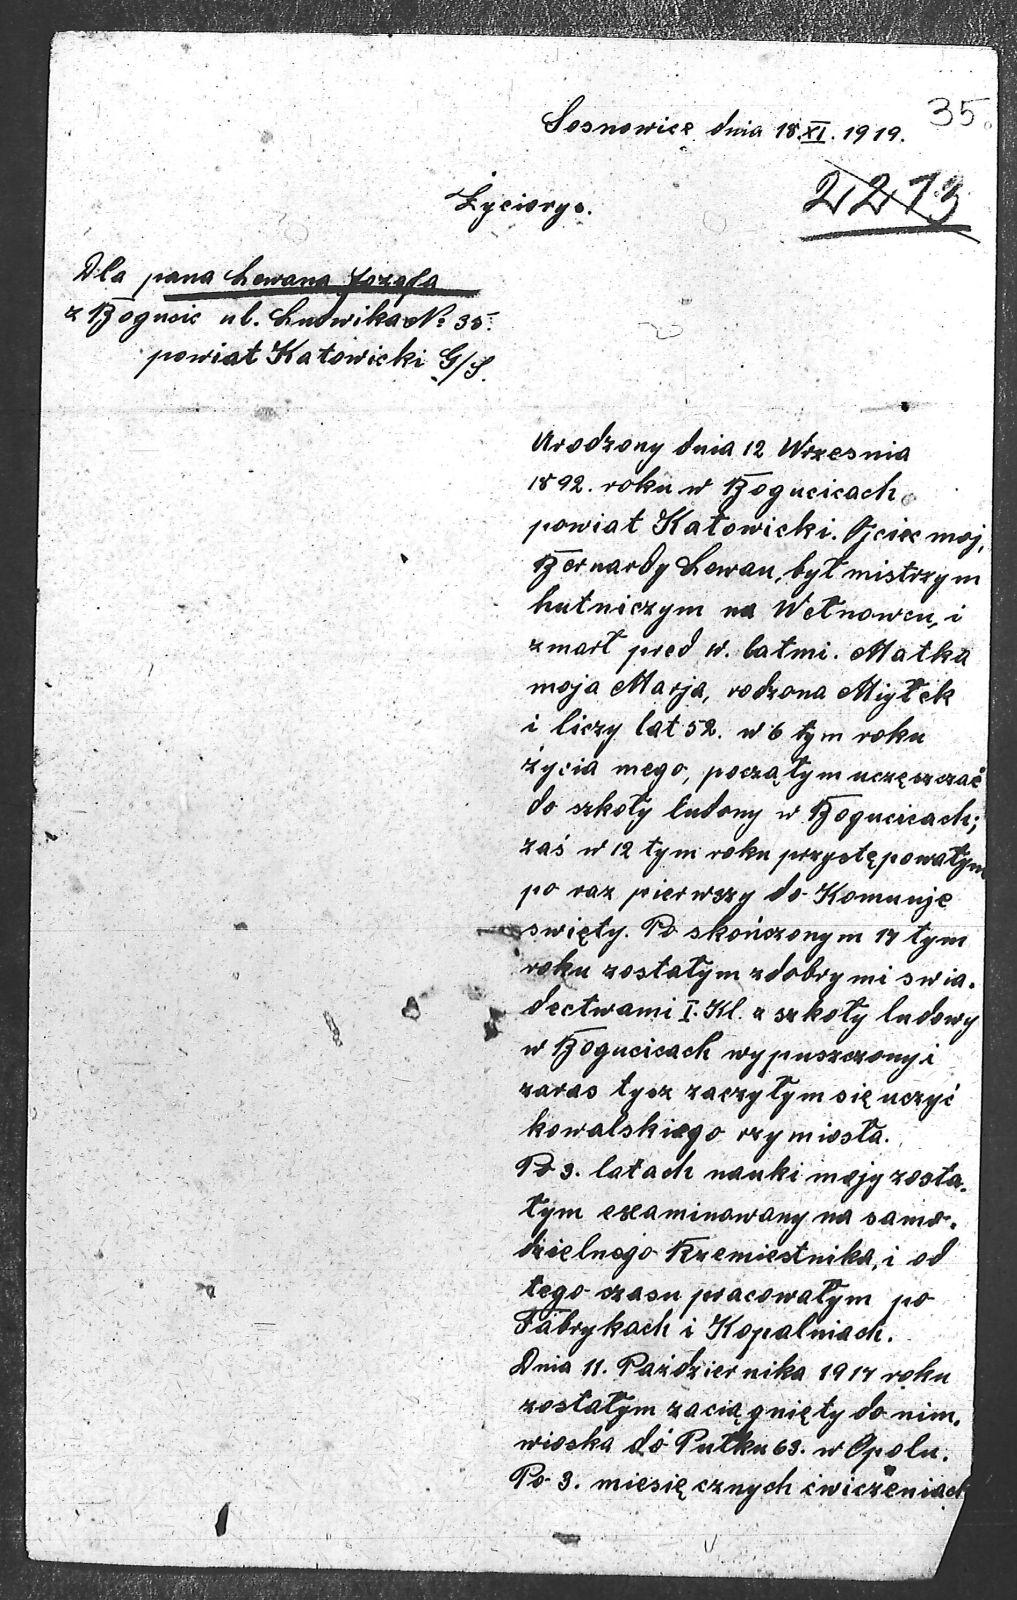 35.
Sosnowice dnia 18.XI.1919.
2213
Życiorys.
Dla pana Lewana Jozefa
z Bogucic ul. Ludwika № 35.
powiat Katowicki G/S.
Urodzony dnia 12 Wrzesnia
1892. roku w Bogucicach
powiat Katowicki. Ojciec moj,
Bernardy Lewan, był mistrzym
hutniczym na Wełnowcu, i
zmarł pred w. latmi. Matka
moja Marja, rodzona Miyłek
i liczy lat 52. w 6 tym roku
życia mego, począłym uczęszczać
do szkoły ludony w Bogucicach;
zaś w 12 tym roku przystępowałym
po raz pierwszy do Komunje
swięty. Po skończonym 14 tym
roku zostałym zdobrymi swia-
dectwami I. Kl. z szkoły ludowy
w Bogucicach wypuszczony i
zaras tysz zaczyłym się uczyć
kowalskiego rzymiosła.
Po 3. latach nauki mojy zosta-
łym examinowany na samo-
dzielnego Rzemiestnika, i od
tego czasu pracowałym po
Fabrykach i Kopalniach.
Dnia 11. Pażdziernika 1914 roku
zostałym zaciągnięty do nim.
wioska do Pułku 63. w Opolu.
Po 3. miesięcznych ćwiczeniach